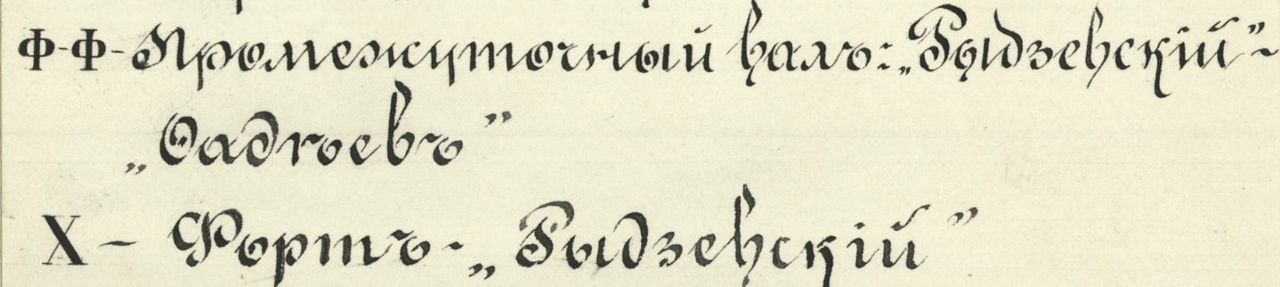 Ф-Ф-Промежуточный валъ: „Рыдзевскій”-
„Ѳадѣевъ”
X – Фортъ-„Рыдзевскій”